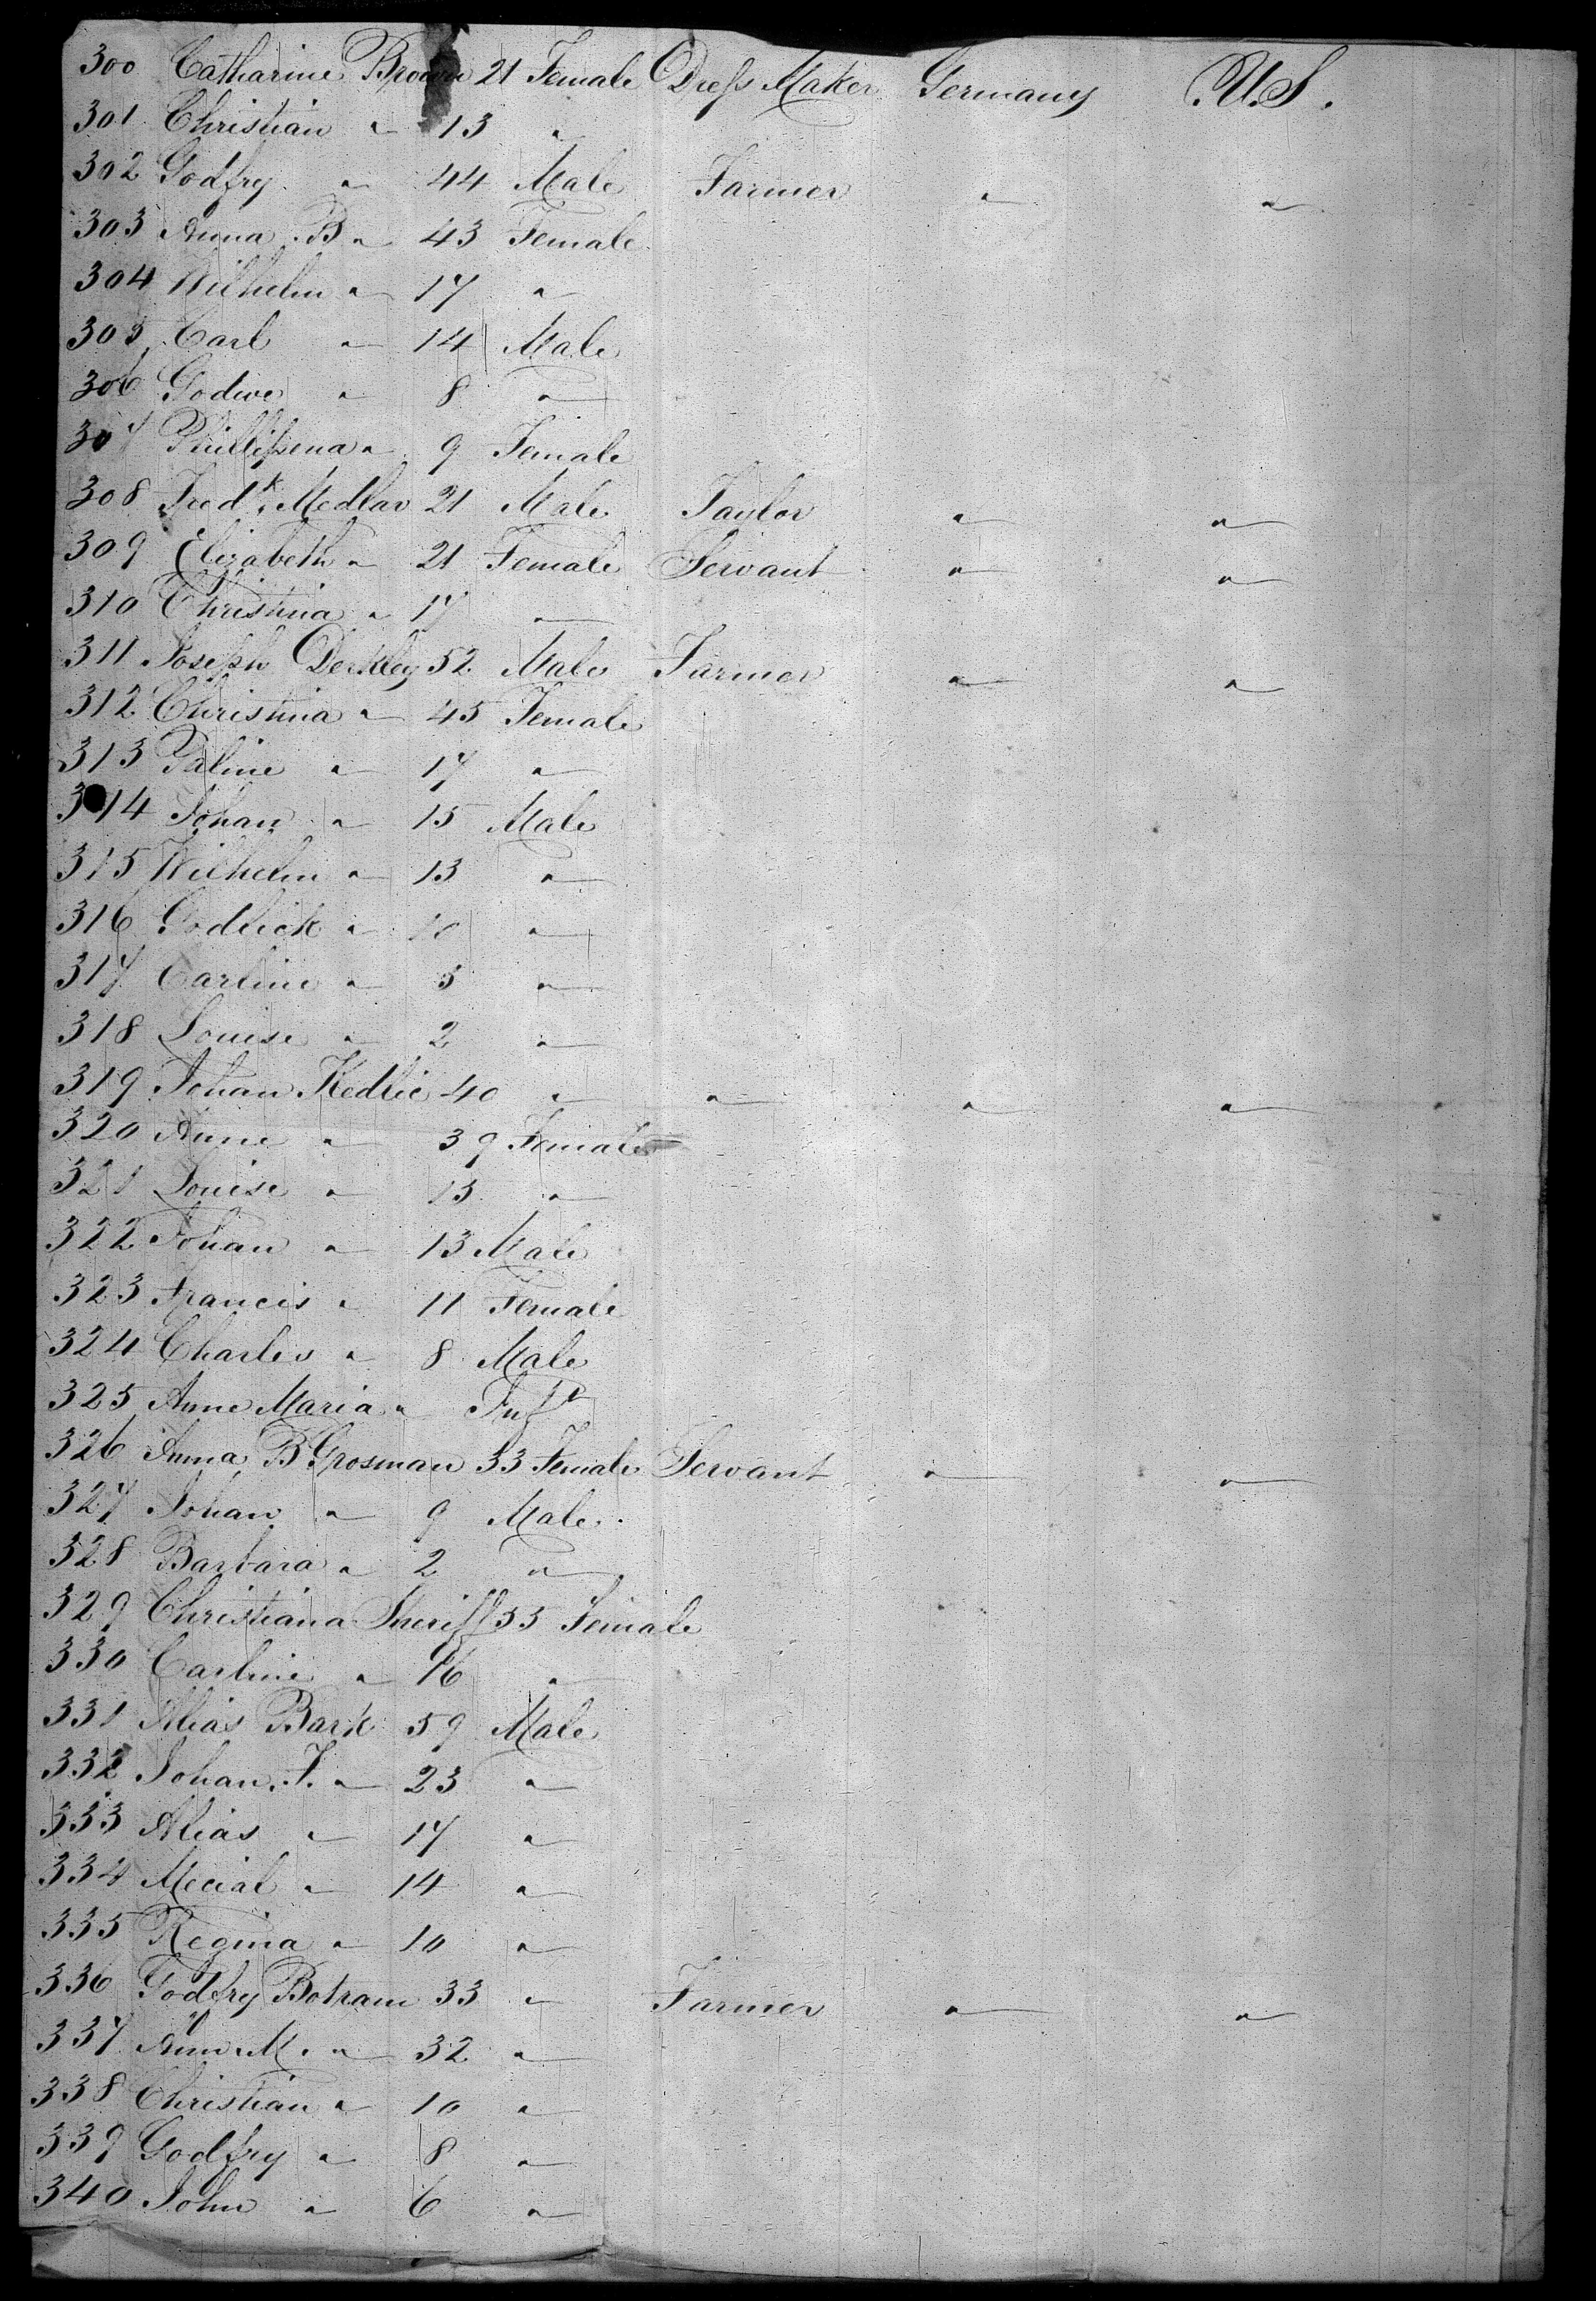 300 Catharine Brown 21 Female Dress Maker Germany U.S.
301 Christian " 13 "
302 Godfry " 44 Male Farmer " "
303 Anna B " 43 Female
304 Wilhelm " 17 "
305 Carl " 14 Male
306 Godive " 8 "
307 Phillipena " 9 Female
308 Fredk. Medlar 21 Male Taylor " "
309 Elizabeth " 21 Female Servant " "
310 Christina " 17 "
311 Joseph Derkley 52 Male Farmer " "
312 Christina " 45 Female
313 Paline " 17 "
314 Johan " 15 Male
315 Wilhelm " 13 "
316 Godlick " 10 "
317 Carline " 5 "
318 Louise " 2 "
319 Johan Kedlic 40 " " " "
320 Anne " 39 Female
321 Louise " 15 "
322 Johan " 13 Male
323 Francis " 11 Female
324 Charles " 8 Male
325 Anne Maria " Inft
326 Anna B Grosman 33 Female Servant " "
327 Johan " 9 Male
328 Barbara " 2 "
329 Christiana Sheriff 55 Female
330 Carline " 16 "
331 Alias Bark 59 Male
332 Johan F. " 23 "
333 Alias " 17 "
334 Mecial " 14 "
335 Regina " 10 "
336 Godfry Botram 33 " Farmer " "
337 Ann M. " 32 "
338 Christian " 10 "
339 Godfry " 8 "
340 John " 6 "